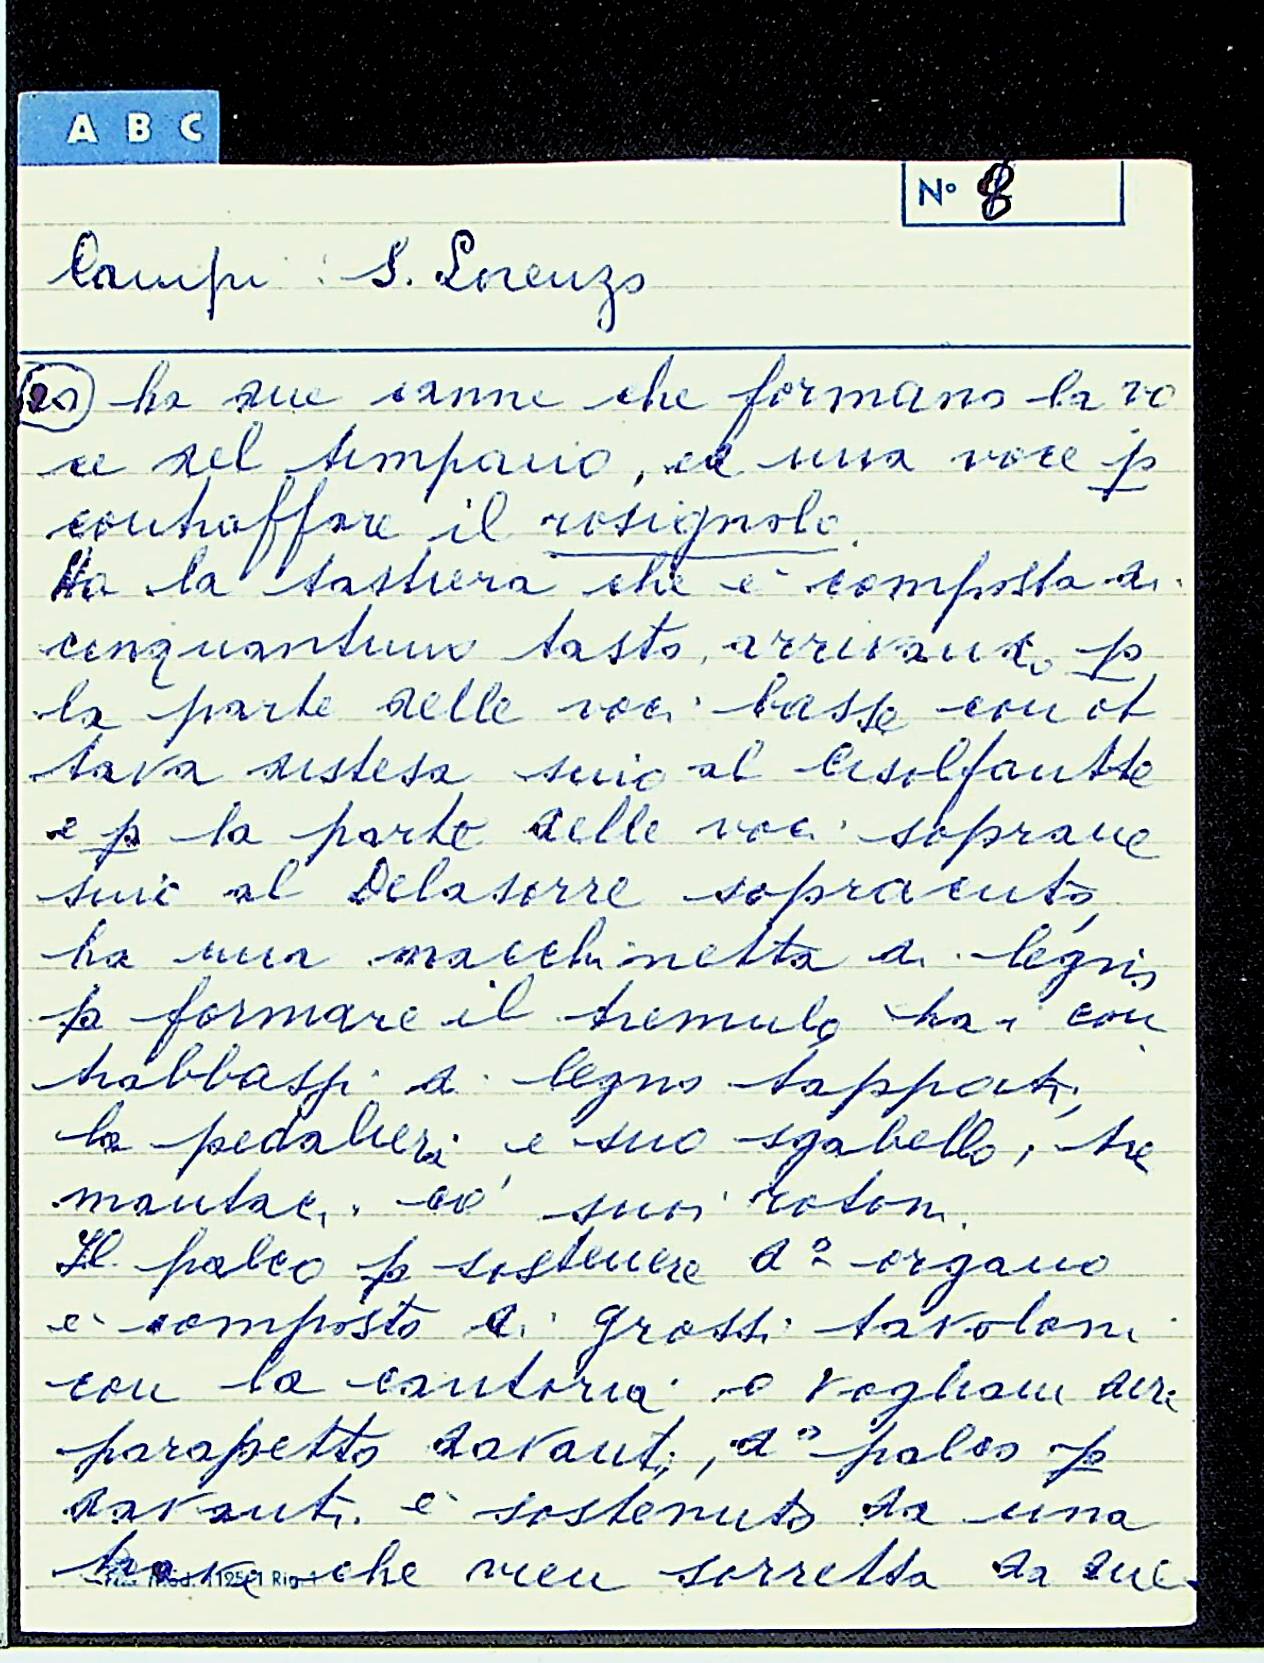 A B C
N° 8
Campi : S. Lorenzo
ha due canne che formano la vo
ce del timpano, ed una voce p
contraffare il rosignolo.
Ha la tastiera che è composta di
cinquantuno tasto, arrivando p
la parte delle voci basse con ot
tava distesa sino al Cisolfautte
e p la parte delle voci soprane
sino al Delasorre sopracuto,
ha una macchinetta di legno
p formare il tremulo ha i con
trabbassi di legno tappati,
la pedaliera e suo sgabello, tre
mantaci co' suoi rotoni.
Il palco p sostenere d° organo
è composto di grossi tavoloni
con la cantoria o vogliam dire
parapetto davanti, d° palco p
davanti è sostenuto da una
trave che vien sorretta da due